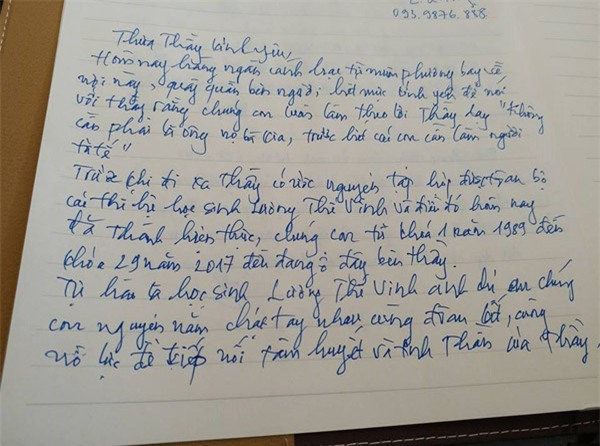 093.9876.888
Thưa Thầy kính yêu,
Hôm nay hàng ngàn cánh hạc từ muôn phương bay về
nơi này, quây quần bên người, hết mực tình yêu để nói
với thầy rằng chúng con luôn làm theo lời Thầy dạy "không
cần phải là ông nọ bà kia, trước hết các con cần làm người
tử tế"
Trước khi đi xa Thầy có ước nguyện tập hợp được toàn bộ
các thế hệ học sinh Lương Thế Vinh và điều đó hôm nay
đã thành hiện thực, chúng con từ khoá 1 năm 1989 đến
khóa 29 năm 2017 đều đang ở đây bên thầy.
Tự hào là học sinh Lương Thế Vinh anh chị em chúng
con nguyện nắm chặt tay nhau cùng đoàn kết, cùng
nỗ lực để tiếp nối tâm huyết và tinh thần của thầy.